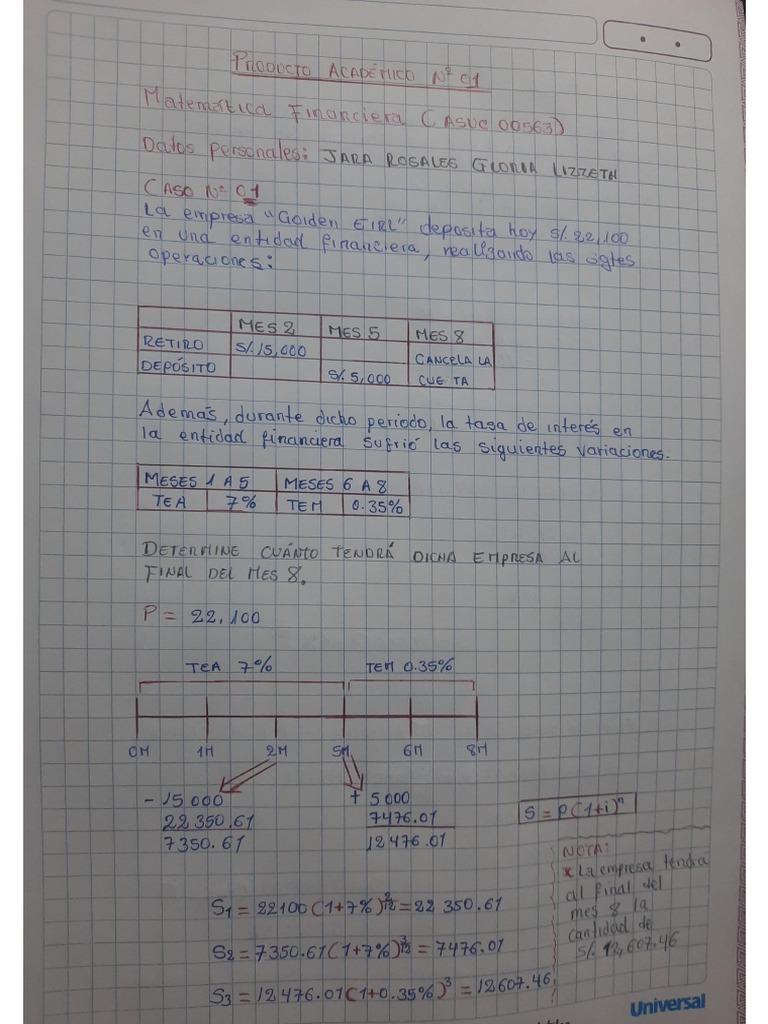 PRODUCTO ACADÉMICO Nº 01
Matemática Financiera (ASUC 00563)
Datos personales: JARA ROSALES GLORIA LIZZETH
CASO Nº 01
La empresa "Golden EIRL" deposita hoy S/. 22,100
en una entidad financiera, realizando las sgtes
operaciones:
MES 2 MES 5 MES 8
RETIRO S/. 15,000 CANCELA LA
DEPÓSITO S/. 5,000 CUETA
Además, durante dicho periodo, la tasa de interés en
la entidad financiera sufrió las siguientes variaciones.
MESES 1 A 5 MESES 6 A 8
TEA 7% TEM 0.35%
DETERMINE CUÁNTO TENDRÁ DICHA EMPRESA AL
FINAL DEL MES 8.
P = 22,100
TEA 7% TEM 0.35%
0M 1M 2M 5M 6M 8M
- 15 000 + 5 000
22 350.61 7476.01
7350.61 12 476.01
S = P(1+i)^n
NOTA:
x La empresa tendra
al final del
mes 8 la
cantidad de
S/. 12,607.46
S1 = 22100(1+7%)^2/12 = 22 350.61
S2 = 7350.61(1+7%)^3/12 = 7476.01
S3 = 12 476.01(1+0.35%)^3 = 12607.46
Universal